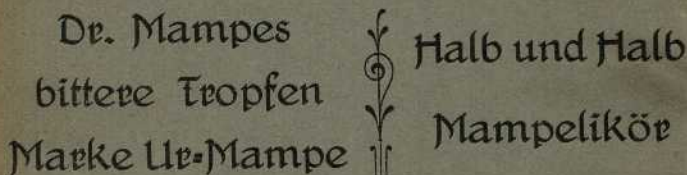 Dr. Mampes
bittere Tropfen
Marke Ur=Mampe
Halb und Halb
Mampelikör